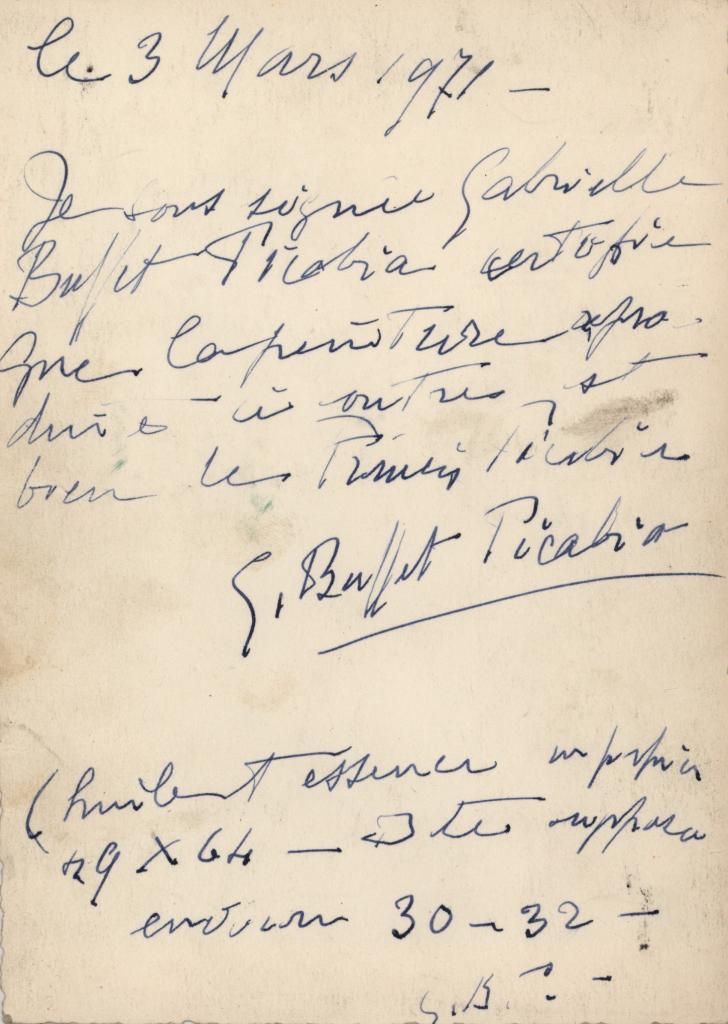 le 3 Mars 1971 -
Je sous signée Gabrielle
Buffet Picabia certifie
que la peinture repro-
duite ci contre, est
bien de Francis Picabia
G. Buffet Picabia
(huile et essence sur papier
49 X 64 — Date supposée
environ 30 - 32 -
G. B. P. -